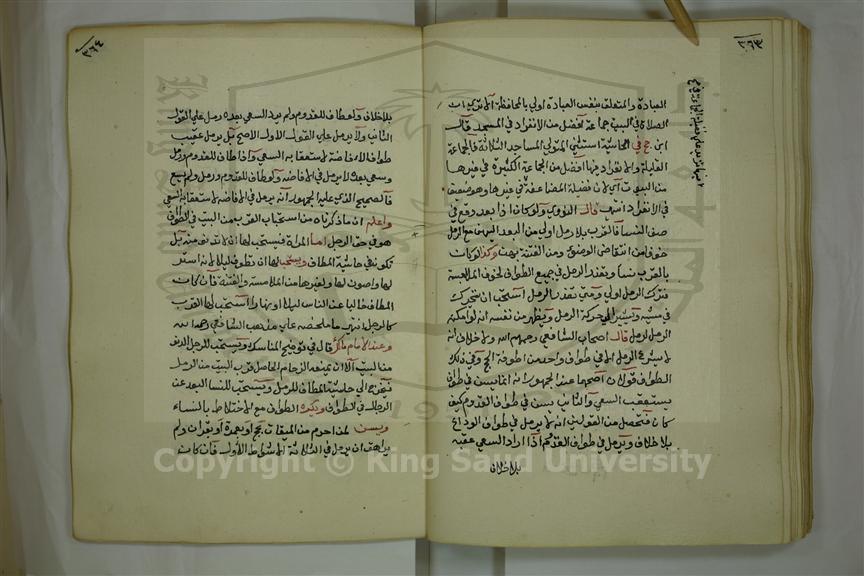 ٣٦٣
العبادة والمتعلق بنفس العبادة اولى بالمحافظة الا ترى ان
الصلاة في البيت جماعة افضل من الانفراد في المسجد قال
ابن حج في الحاشية استثنى المتولي المساجد الثلاثة فالجماعة
القليلة والانفراد فيها افضل من الجماعة الكثيرة في غيرها
من البيوت اي لان فضيلة المضاعفة في غيرها وهو ضعيف
في الانفراد انتهى قال النووي ولو كان اذا بعد وقع في
صف النسا فالقرب بلا رمل اولى من البعد اليهن مع الرمل
خوفا من انتقاض الوضوء ومن الفتنة بهن وكذا لو كان
بالقرب نسا ويتعذر الرمل في جميع الطواف لخوف الملامسة
فترك الرمل اولى ومتى تعذر الرمل استحب ان يتحرك
في مشيه ويشير الى حركة الرمل ويظهر من نفسه انه لو امكنه
الرمل لرمل قال اصحاب الشافعي رحمهم الله ولا خلاف انه
لا يشرع الرمل الا في طواف واحد من اطوفة الحج وفي ذلك
الطواف قولان اصحهما عند الجمهور انه انما يسن في طواف
يستعقب السعي والثاني يسن في طواف القدوم كيف
كان فتحصل من القولين انه لا يرمل في طواف الوداع
بلا خلاف ويرمل في طواف القدوم اذا اراد السعي عقبه
بلا خلاف
٣٦٤
بلا خلاف ولو طاف للقدوم ولم يرد السعي بعده رمل على القول
الثاني ولا يرمل على القول الاول الاصح بل يرمل عقيب
طواف الافاضة لاستعقابه السعي واذا طاف للقدوم ورمل
وسعى بعده لا يرمل في الافاضة ولو طاف للقدوم ورمل ولم يسع
فالصحيح الذي عليه الجمهور انه يرمل في الافاضة لاستعقابه السعي
واعلم ان ما ذكرناه من استحباب القرب من البيت في الطواف
هو في حق الرجل اما المراة فيستحب لها ان لا تدنو منه بل
تكون في حاشية المطاف ويستحب لها ان تطوف ليلا لانه استر
لها واصون لها ولغيرها من الملامسة والفتنة فان كان
المطاف خاليا عن الناس ليلا او نهارا استحب لها القرب
كالرجل انتهى ما لخصه على مذهب الشافعي رحمه الله
وعند الامام مالك قال في توضيح المناسك ويستحب للرجل الدنو
من البيت الا ان يمنعه الزحام الحاصل قرب البيت من الرمل
فيخرج الى حاشية المطاف للرمل ويستحب للنسا البعد عن
الرجال في الطواف ويكره الطواف مع الاختلاط بالنساء
ويسن لمن احرم من الميقات بحج او بعمرة او بقران ولم
يراهق ان يرمل في الثلاثة الاشواط الاول فان كان
Copyright © King Saud University